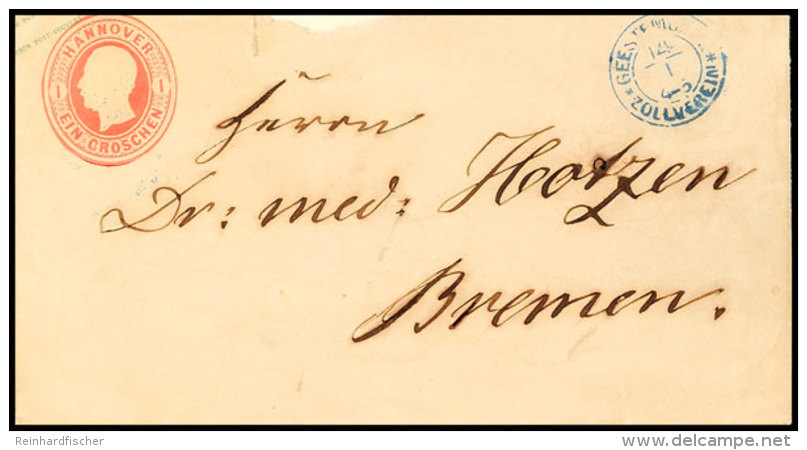 HANNOVER
1 1
EIN GROSCHEN
14
1
4-5
*ZOLLVEREIN*
Herrn
Dr: med: Hotzen
Bremen.
Reinhardfischer
delcampe.net